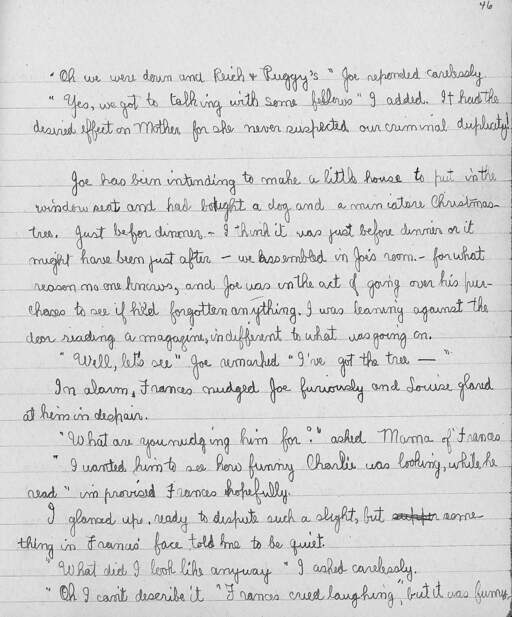 46
"Oh we were down and Reich & Puggy's" Joe reponded carelessly
"Yes, we got to talking with some fellows" I added. It had the
desired effect on Mother for she never suspected our criminal duplicity!
Joe has been intending to make a little house to put in the
window seat and had bought a dog and a miniature Christmas-
tree. Just befor dinner - I think it was just before dinner or it
might have been just after - we assembled in Joe's room - for what
reason no one knows, and Joe was in the act of going over his pur-
chases to see if he'd forgotten anything. I was leaning against the
door reading a magazine, indifferent to what was going on.
"Well, let's see" Joe remarked "I've got the tree — "
In alarm, Frances nudged Joe furiously and Louise glared
at him in despair.
"What are you nudging him for?" asked Mama of Frances
"I wanted him to see how funny Charlie was looking, while he
read" improvised Frances hopefully.
I glanced up, ready to dispute such a slight, but some-
thing in Frances' face told me to be quiet.
"What did I look like anyway" I asked carelessly.
"Oh I can't describe it" Frances cried laughing", but it was funny